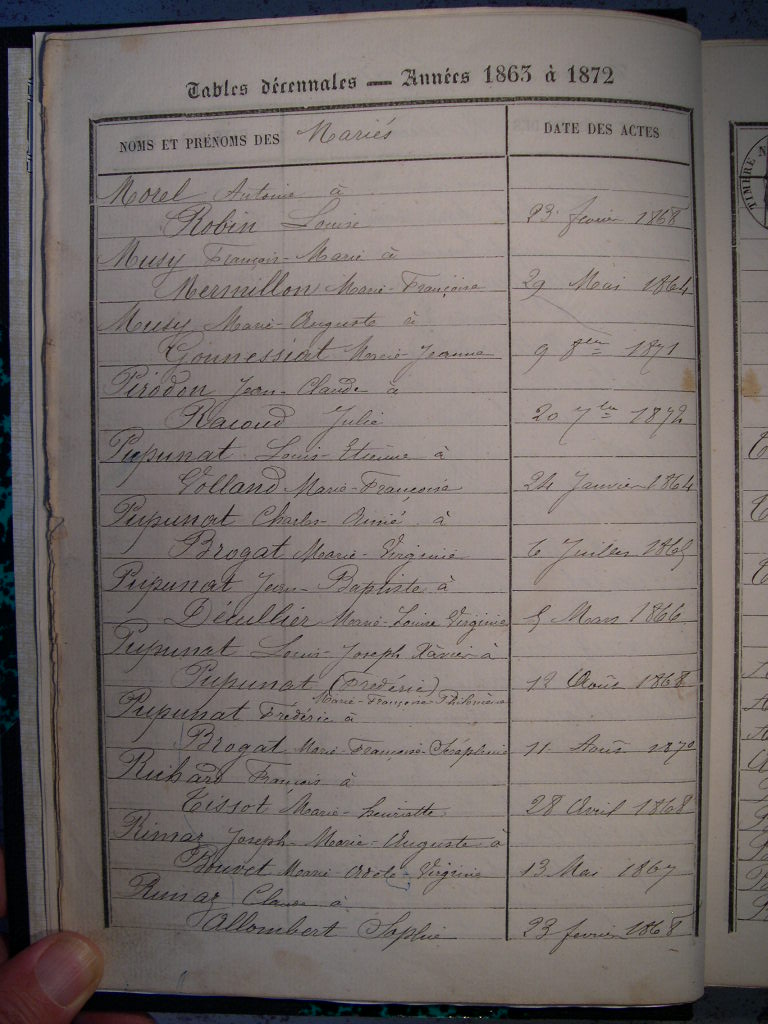 Tables décennales — Années 1863 à 1872
NOMS ET PRÉNOMS DES Mariés
DATE DES ACTES
Morel Antoine à
Robin Louise 23 février 1868
Musy François-Marie à
Mermillon Marie-Françoise 29 Mai 1864
Musy Marie-Auguste à
Gonnessiat Marie-Jeanne 9 8bre 1871
Pirodon Jean-Claude à
Racoud Julie 20 7bre 1872
Pupunat Louis-Etienne à
Volland Marie-Françoise 24 Janvier 1864
Pupunat Charles-Aimé à
Brogat Marie-Virginie 6 Juillet 1865
Pupunat Jean-Baptiste à
Décullier Marie-Louise Virginie 5 Mars 1866
Pupunat Louis-Joseph Xavier à
Pupunat (Frédéric) 12 Août 1868
Marie-Françoise Philomène
Pupunat Frédéric à
Brogat Marie-Françoise-Séraphine 11 Août 1870
Richard François à
Tissot Marie-henriette 28 Avril 1868
Rimaz Joseph-Marie-Auguste à
Bouvet Marie- -Virginie 13 Mai 1867
Rimaz Claude à
Allombert Sophie 23 février 1868
TIMBRE N